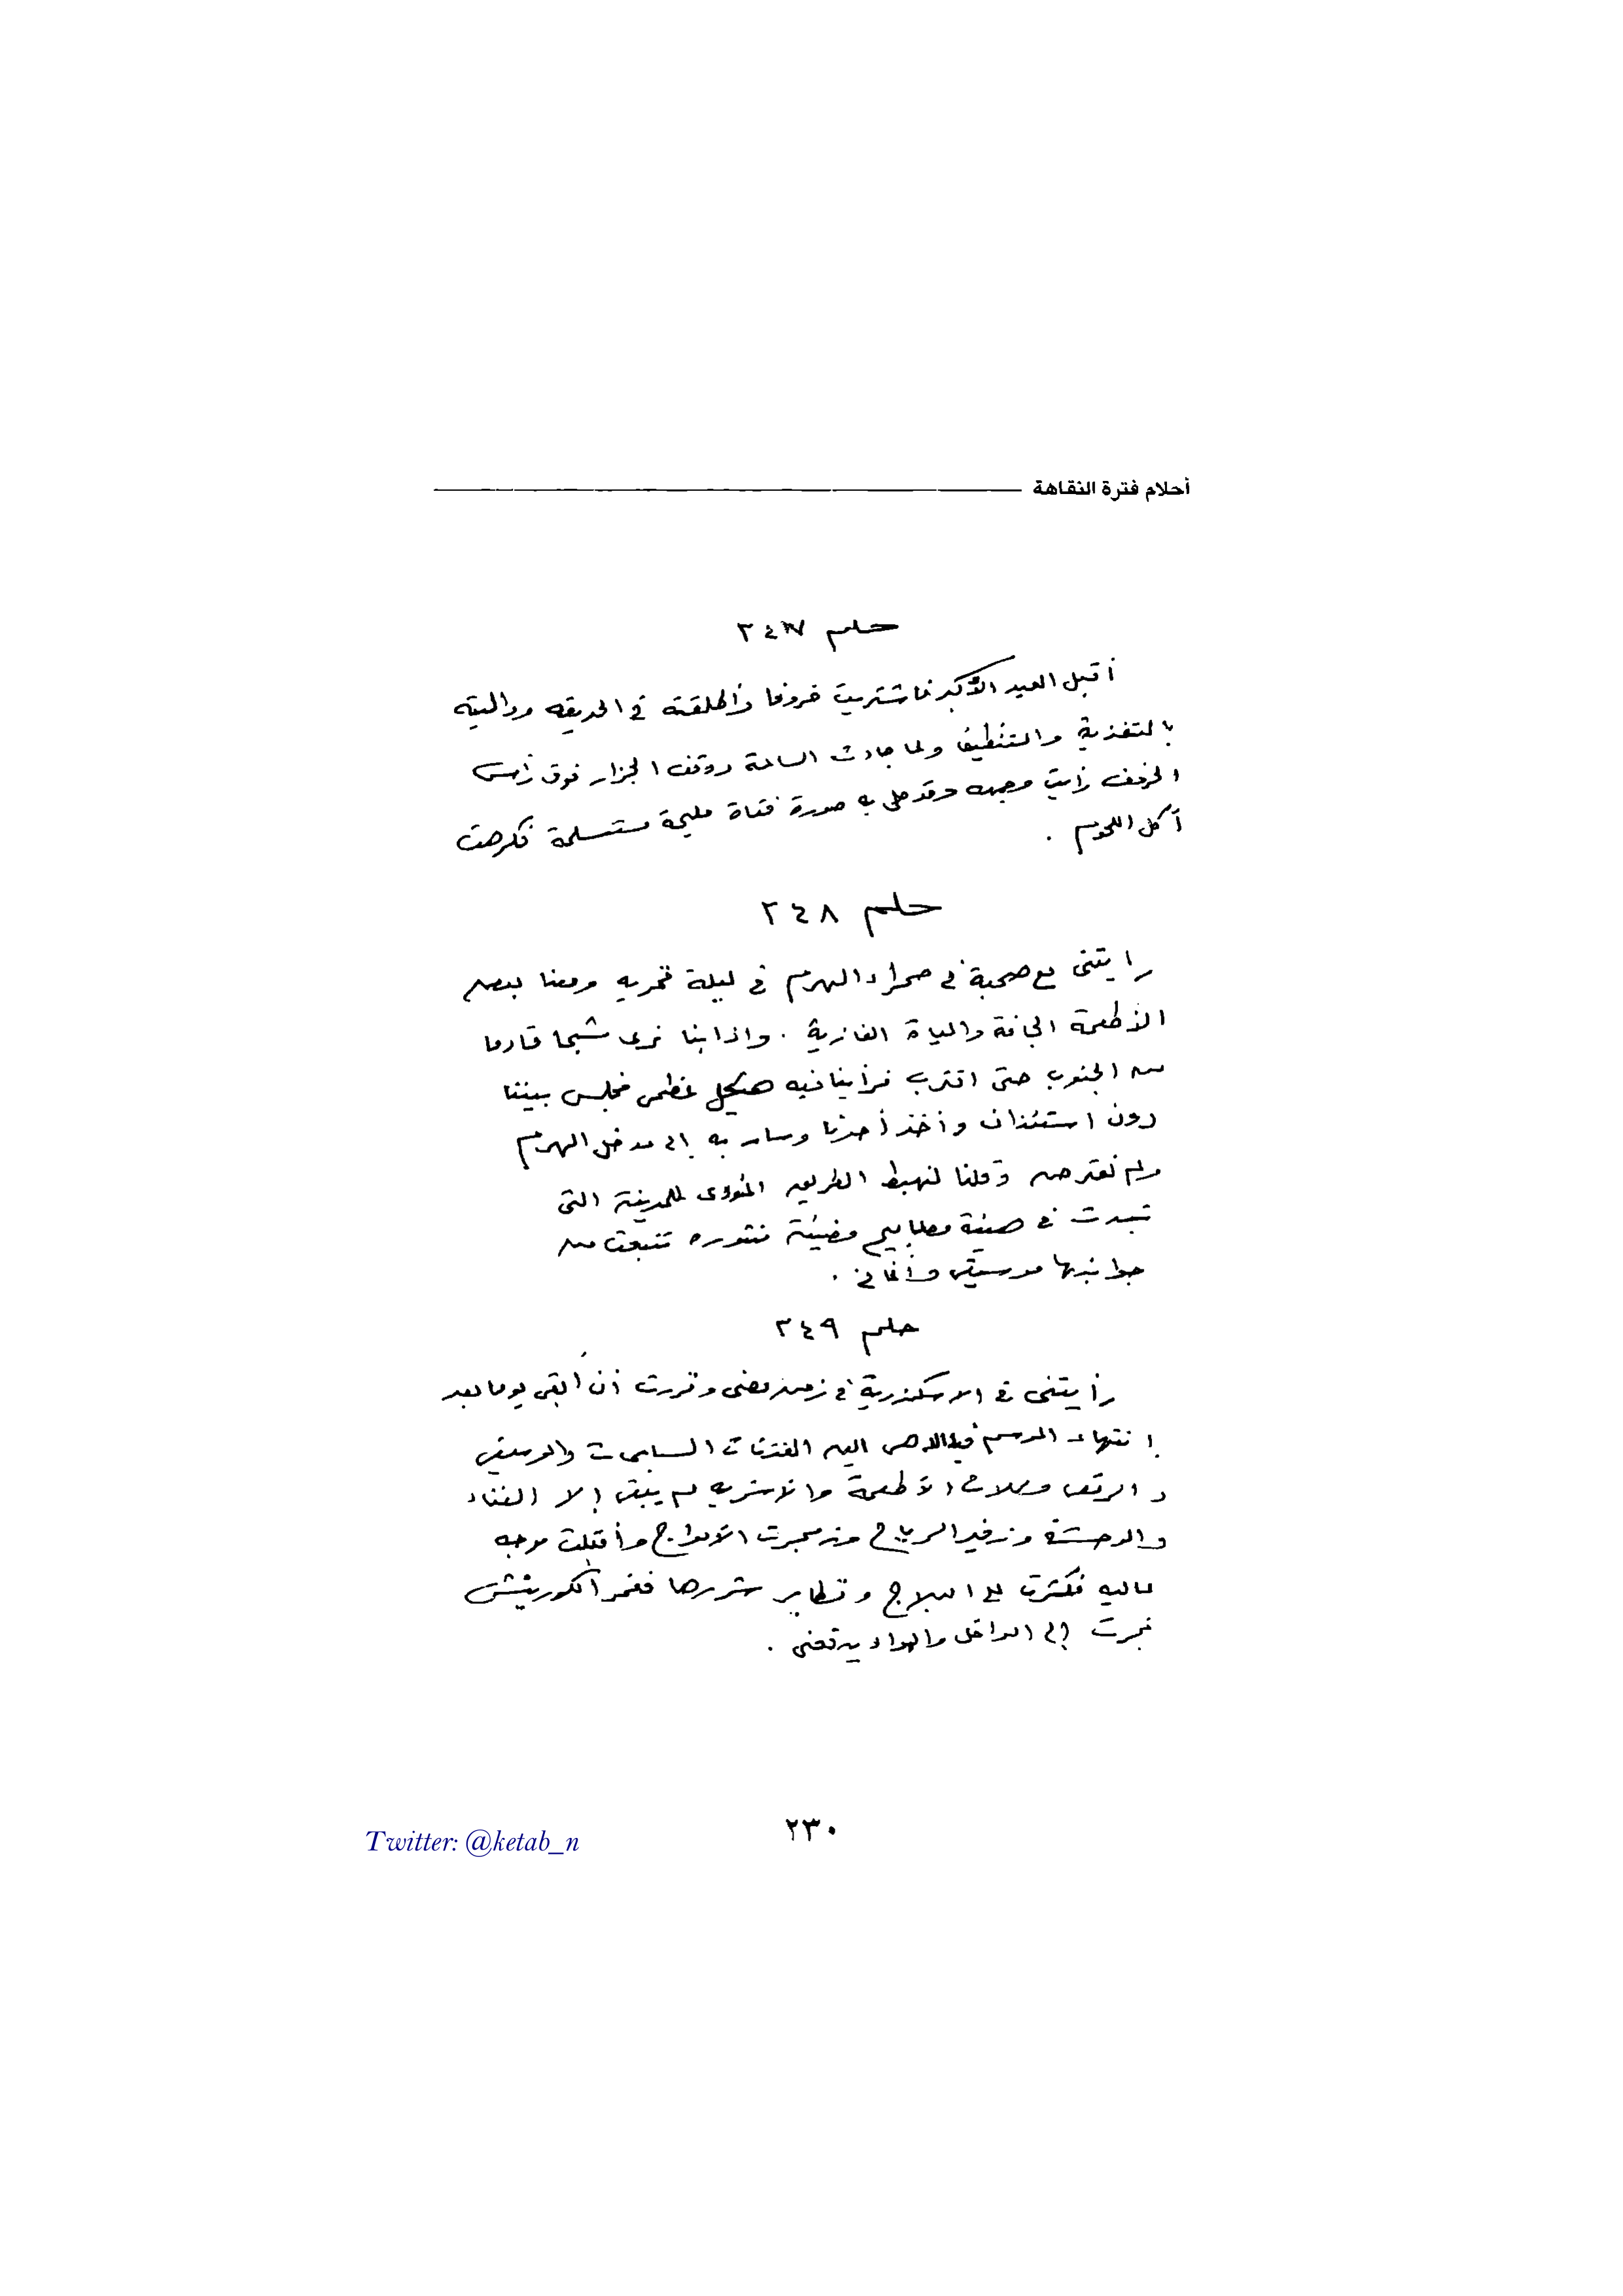 أحلام فترة النقاهة
حلم ٢٤٧
أقبل العيد الأكبر فاشتريت خروفا وأطلقته في الحديقه وواليته
بالتغذية والتنظيف ولما جاءت الساعة ووقف الجزار فوق رأس
الخروف رأيت وجهه وقد حلى به صورة فتاة مليحة مستسلمة فكرهت
أكل اللحوم .
حلم ٢٤٨
رايتنى مع صحبة فى صحراء الهرم فى ليلة قمريه ومعنا بعض
الأطعمة الجافة والمياة الغازية . واذا بنا نرى شبحا قادما
من الجنوب حتى اقترب فرأينا فيه هيكل عظمى فجلس بيننا
دون استئذان وأخذ أحدنا وسار به إلى مدخل الهرم
ولم نعترض وقلنا لنهبط الطريق المؤدى للمدينة التى
تبدت فى مصابيح مضيئة منثوره تنبعث من
جوانبها موسيقى وأغانى .
حلم ٢٤٩
رأيتنى فى الاسكندرية فى زمن مضى وقررت أن أبقى يوما بعد
إنتهاء الموسم الفتيات السابحات والموسيقى
و الرقص ومحلات الأطعمة والأشربه لم يبق إلا الفناء
والوحشة وزفير الرياح وزمجرت الأمواج وأقبلت موجه
عاليه فكسرت على البلاج وتطاير شررها فغمر الكورنيش
فجريت إلى الداخل والهواء يدفعنى .
٢٣٠
Twitter: @ketab_n